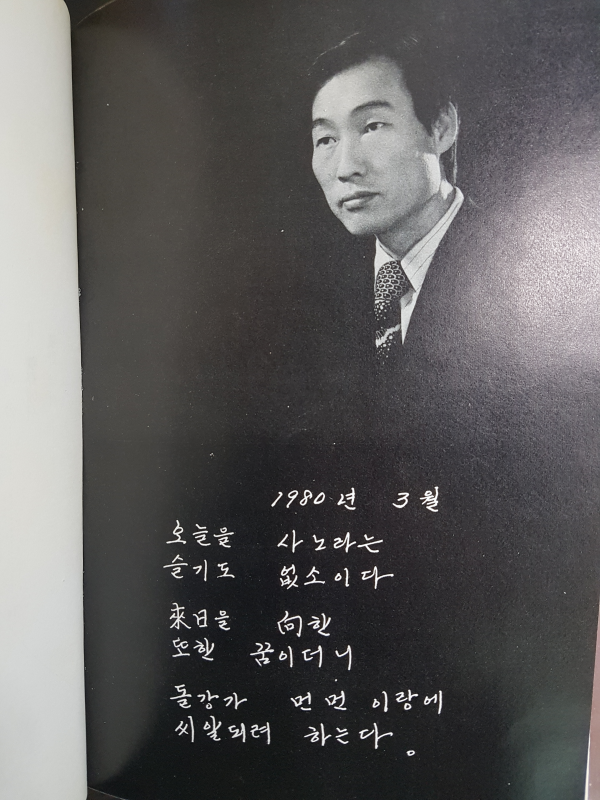 1980년 3월
오늘을 사노라는
슬기도 없소이다
來日을 向한
또한 꿈이더니
돌강가 먼먼 이랑에
씨알되려 하는다.